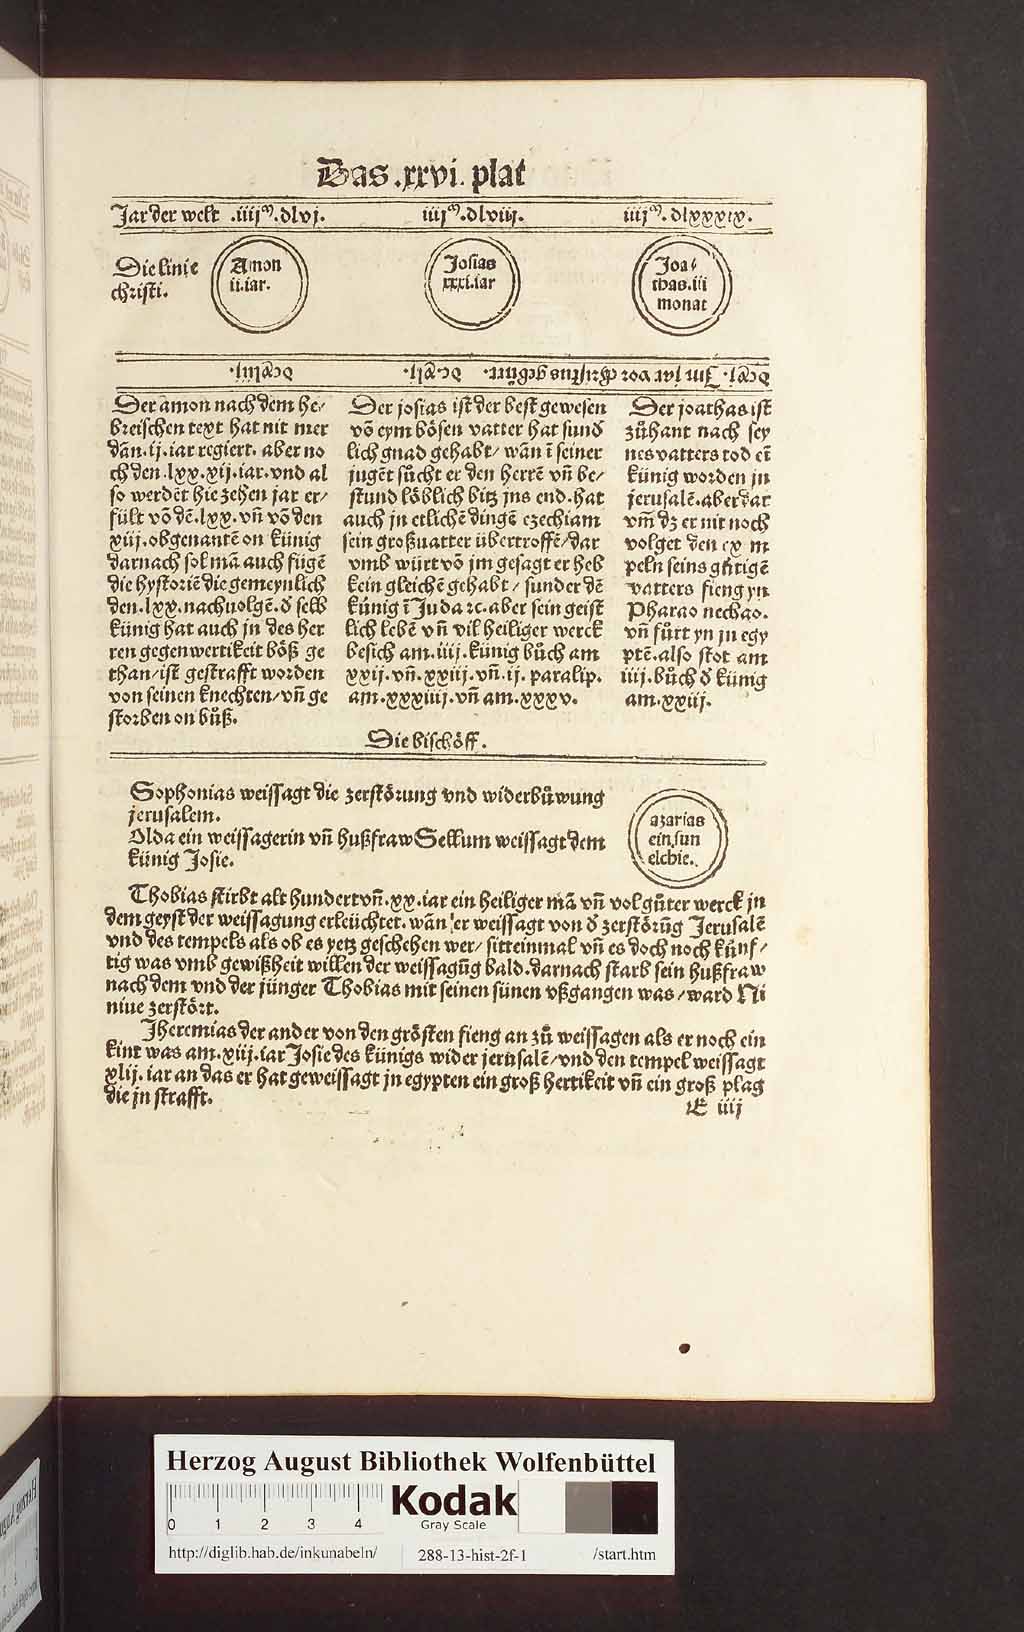 Das .xxvi. plat
Jar der welt .iiijᵐ.dlvj. iiijᵐ.dlviij. iiijᵐ.dlxxxix.
Die linie
christi.
Amon
ii.iar.
Josias
xxxi.iar
Joa⸗
thas.iii
monat
Im iar vor christus gebürt.
Der amon nach dem he⸗
breischen text hat nit mer
dañ.ij.iar regiert. aber no
ch den.lxx.xij.iar.vnd al
so werdēt hie zehen jar er⸗
fült võ dē.lxx.vñ võ den
xiij.obgenantē on künig
darnach sol mã auch fügē
die hystoriē die gemeynlich
den.lxx.nachuolgē.d̕ selb
künig hat auch jn des her
ren gegenwertikeit böß ge
than/ist gestrafft worden
von seinen knechten/vñ ge
storben on bůß.
Der josias ist der best gewesen
võ eym bösen vatter hat sund
lich gnad gehabt/wãn ī seiner
jugēt sůcht er den herrē vñ be⸗
stund löblich bitz jns end.hat
auch jn etlichē dingē ezechiam
sein großuatter übertroffē/dar
vmb würt võ jm gesagt er heb
kein gleichē gehabt/sunder dē
künig ī Juda ⁊c.aber sein geist
lich lebē vñ vil heiliger werck
besich am.iiij.künig bůch am
xxij.vñ.xxiij.vñ.ij.paralip.
am.xxxiiij.vñ am.xxxv.
Der joathas ist
zůhant nach sey
nes vatters tod eī
künig worden jn
jerusalē.aber dar
vm̃ dz er nit noch
volget den exem
peln seins gůtigē
vatters fieng yn
Pharao nechao.
vñ fůrt yn jn egy
ptē.also stot am
iiij.bůch d̕ künig
am.xxiij.
Die bischöff.
Sophonias weissagt die zerstörung vnd widerbůwung
jerusalem.
Olda ein weissagerin vñ hußfraw Sellum weissagt dem
künig Josie.
azarias
ein sun
elchie.
Thobias stirbt alt hundert vñ.xx.iar ein heiliger mã vñ vol gůter werck jn
dem geyst der weissagung erleüchtet.wãn er weissagt von d̕ zerstörũg Jerusalē
vnd des tempels als ob es yetz geschehen wer/sitteinmal vñ es doch noch künf⸗
tig was vmb gewißheit willen der weissagũg bald.darnach starb sein hußfraw
nach dem vnd der jünger Thobias mit seinen sünen vßgangen was/ward Ni
niue zerstört.
Jheremias der ander von den grösten fieng an zů weissagen als er noch ein
kint was am.xiij.iar Josie des künigs wider jerusalē/vnd den tempel weissagt
xlij.iar an das er hat geweissagt jn egypten ein groß hertikeit vñ ein groß plag
die jn strafft.
E iiij
Herzog August Bibliothek Wolfenbüttel
0 1 2 3 4
Kodak
Gray Scale
http://diglib.hab.de/inkunabeln/ 288-13-hist-2f-1 /start.htm